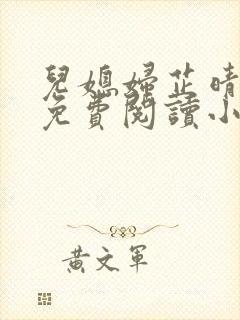 兒媳婦芷晴
免費閱讀小
黃文軍